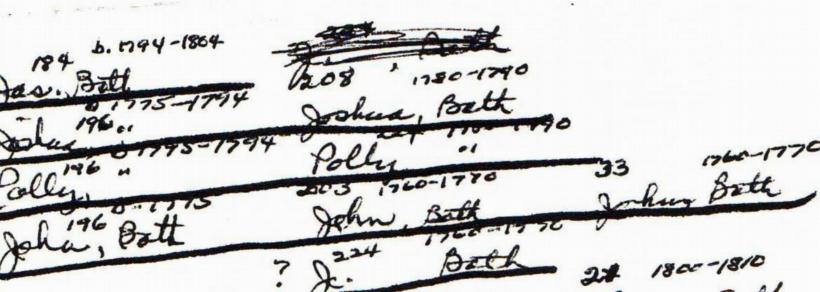 184 b. 1794-1804
Jas. Bath
196 b 1775-1794
Joshua "
196 b 1775-1794
Polly, "
196 b. -1775
John, Bath
Bath
208 1780-1790
Joshua, Bath
Polly "
1760-1770
John, Bath
224 1760-1770
? J. Bath
33 1760-1770
Joshua Bath
1800-1810